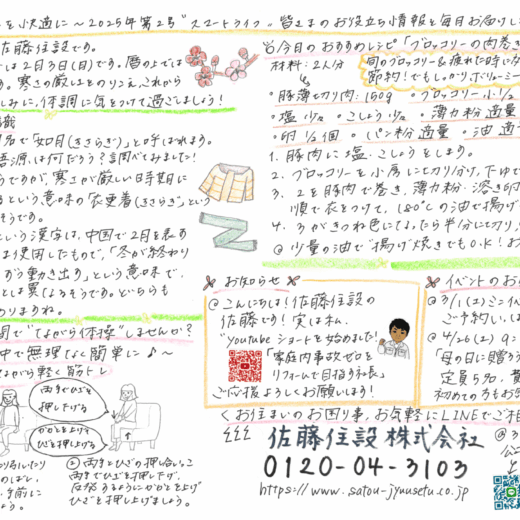 を快適に～2025年第2号"スマートライフ"皆さまのお役立ち情報を毎日お届けし
佐藤住設です。
は2月3日(月)です。暦の上では
。寒さの厳しさをのりこえ、これから
しみに、体調に気をつけて過ごしましょう！
名で「如月(きさらぎ)」と呼ばれます。
語源は何だろう？調べてみました！
うですが、寒さが厳しい時期に
るという意味の「衣更着(きさらぎ)という
そうです。
という漢字は、中国で2月を表す
ま使用したもので、「冬が終わり
動き出す」という意味で、
とは異なるそうです。どちらも
ありますね。
間で"ながら体操"しませんか？
中で無理なく簡単に♪～
ながら軽く筋トレ
両手でひざを
押し下げる
かかとを上げて
ひざを押し上げる
②両手とひざの押し合いっこ
両手でひざを押し下げ、
反発するようにかかとを上げ
ひざを押し上げましょう。
今日のおすすめレシピ「ブロッコリーの肉巻き
材料：2人分
旬のブロッコリーを疲れた時にな
節約！でもしっかりボリューミー
・豚薄切り肉：150g ・ブロッコリー小1/2
・塩 少々 ・こしょう少々 ・薄力粉 適量
・卵 1/2個 ・パン粉 適量 ・油 適
1. 豚肉に塩、こしょうをします。
2. ブロッコリーを小房に切り分け、下ゆで
3. 2を豚肉で巻き、薄力粉、溶き卵
順で衣をつけて、180℃の油で揚げ
4. 3がきつね色になったら半分に切り、
@少量の油で揚げ焼きでもO.K！お
お知らせ
@こんにちは！佐藤住設の
佐藤です！実は私、
"Youtubeショートを始めました！
「家庭内事故ゼロを
リフォームで目指す社長」
ご応援よろしくお願いします！
イベントのお
@3/1(土)ミニイベ
ご予約い、は
@4/26(土)9:
「母の日に贈る
定員5名、費
初めての方もお気
くお住まいのお困り事、お気軽にLINEでご相
佐藤住設株式会社
0120-04-3103
https://www.satou-jyuusetu.co.jp